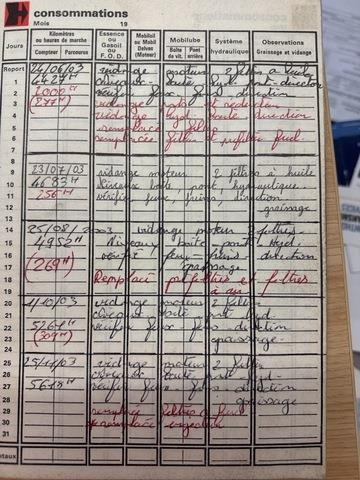 consommations
Mois 19
Jours
Kilomètres ou heures de marche
Compteur Parcourus
Essence ou Gasoil ou F.O.D.
Mobiloil ou Mobil Delvac (Moteur)
Mobilube
Boîte de vit. Pont arrière
Système hydraulique
Observations
Graissage et vidange
Report 24/06/03 vidange moteur 2 filtres
1 4427H direction
2 2000H direction
3 (277H) vidange
4 vidange hyd direction
5 remplacé filtre
6 filtre et préfiltre fuel
7
8
9 23/07/03 vidange moteur 2 filtres à huile
10 4683H niveaux boîte pont hydraulique
11 256H vérifier feux, freins, direction
12 graissage
13
14 25/08/2003 vidange moteur 2 filtres
15 4952H Niveaux boîte pont Hyd.
16 vérif feux - freins - direction
17 (269H) graissage
18 Remplacé préfiltres et filtres
19 à air
20 1/10/03 vidange moteur 2 filtres
21 boîte pont hyd.
22 5261H vérifier feux freins direction
23 (309H) graissage
24
25 25/11/03 vidange moteur 2 filtres
26 boîte pont hyd
27 5618H vérifier feux freins direction
28 graissage
29 filtres à fuel
30 remplacé
31
otaux